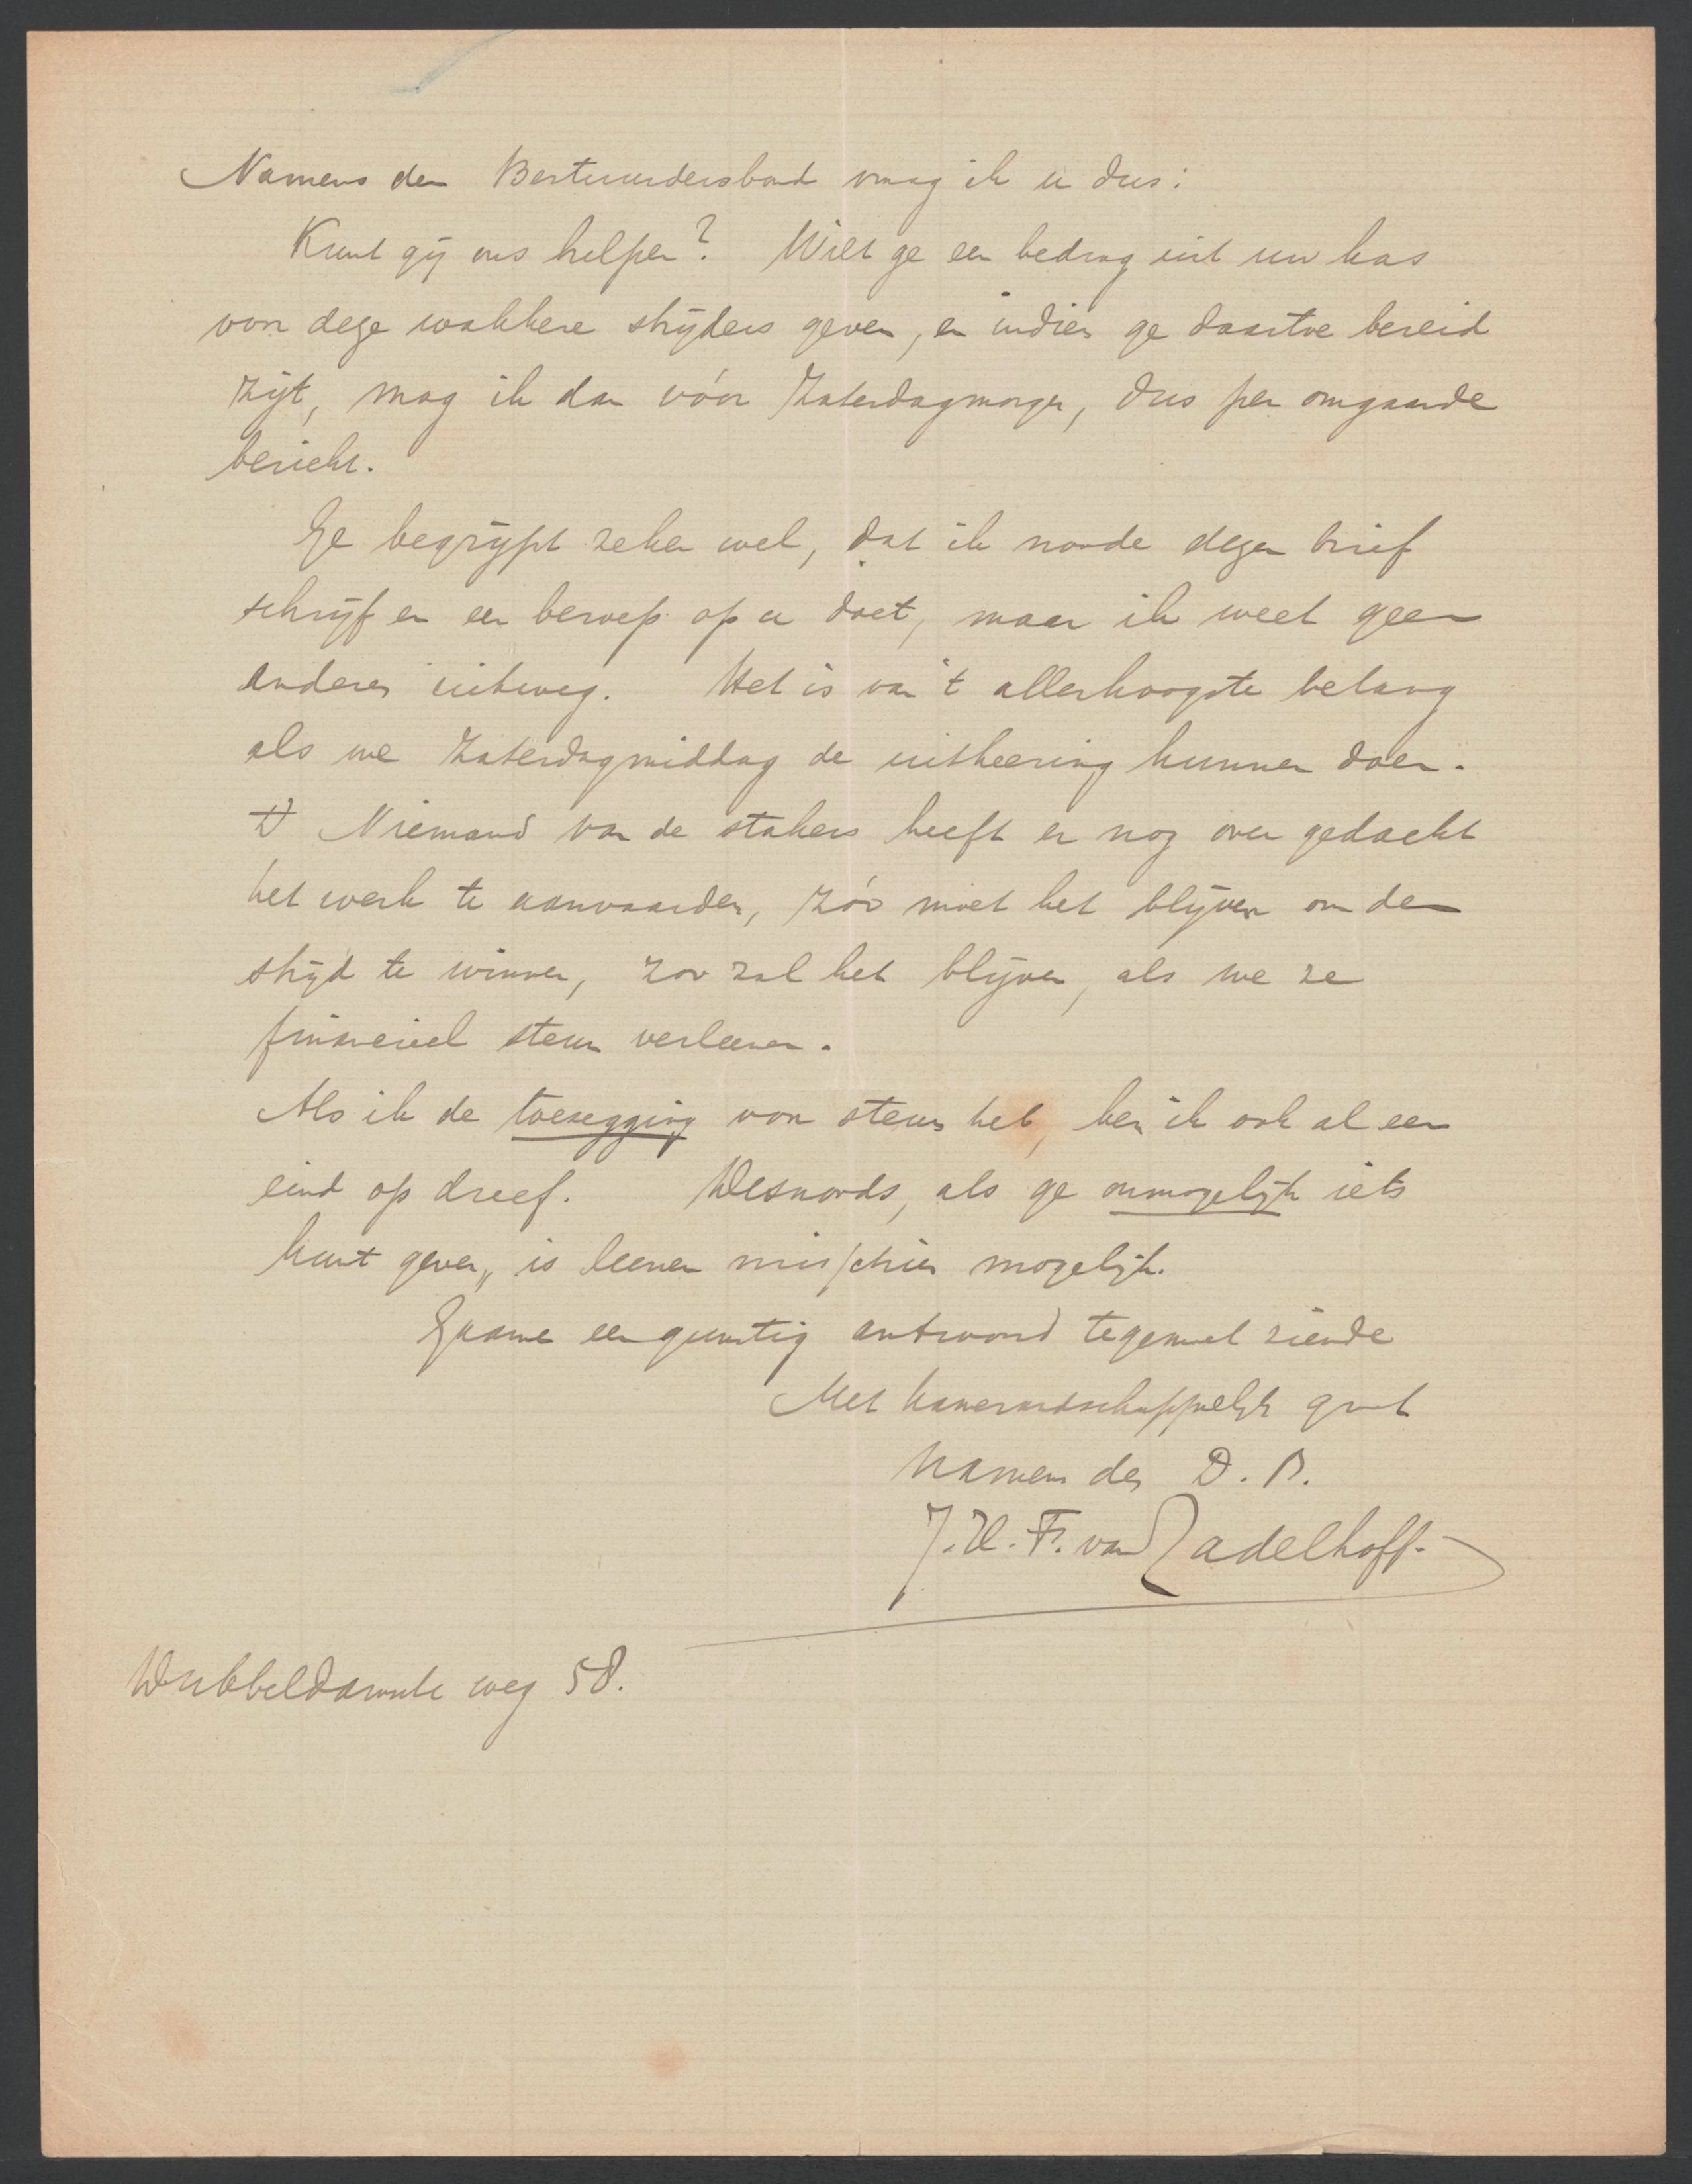 Namens den Bestuurdersbond vraag ik u dus:
Kunt gij ons helpen? Wilt ge een bedrag uit uw kas
voor deze wakkere strijders geven, en indien ge daartoe bereid
zijt, mag ik dan vóór Zaterdagmorgen, dus per omgaande
bericht.
Ge begrijpt zeker wel, dat ik noode dezen brief
schrijf en een beroep op u doet, maar ik weet geen
anderen uitweg. Het is van 't allerhoogste belang
als we Zaterdagmiddag de uitkeering kunnen doen.
Niemand van de stakers heeft er nog over gedacht
het werk te aanvaarden, zóó moet het blijven om den
strijd te winnen, zoo zal het blijven, als we ze
financieel steun verleenen.
Als ik de toezegging van steun heb, ben ik ook al een
eind op dreef. Desnoods, als ge onmogelijk iets
kunt geven, is leenen misschien mogelijk.
Gaarne een gunstig antwoord tegemoet ziende
Met kameraadschappelijk groet
Namens den D. B.
J. H. F. van Zadelhoff.
Dubbeldamsche weg 58.